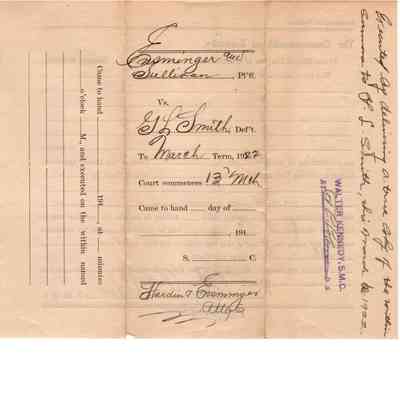 Ensminger and
Sullivan, Pl'ff.
Vs.
G L Smith, Def't.
To March Term, 1922
Court commences 13" Mch
Came to hand day of
191
S. C.
Hardin & Ensminger
Attys
Came to hand 191 at minutes
o'clock M., and executed on the within named
Executed by delivering a true copy of the within
summons to G. L. Smith, this March 1922.
WALTER KENNEDY, S.M.C.
D.S.